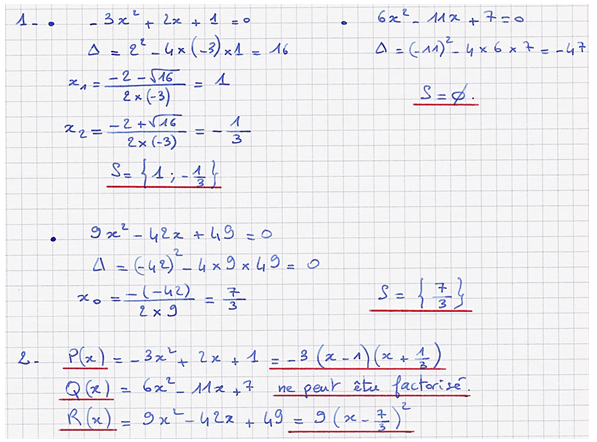 1- • -3x² + 2x + 1 = 0
Δ = 2² - 4×(-3)×1 = 16
x₁ = (-2 - √16)/(2×(-3)) = 1
x₂ = (-2 + √16)/(2×(-3)) = -1/3
S = {1 ; -1/3}
• 6x² - 11x + 7 = 0
Δ = (-11)² - 4×6×7 = -47
S = ∅.
• 9x² - 42x + 49 = 0
Δ = (-42)² - 4×9×49 = 0
x₀ = -(-42)/(2×9) = 7/3
S = {7/3}
2- P(x) = -3x² + 2x + 1 = -3(x-1)(x + 1/3)
Q(x) = 6x² - 11x + 7 ne peut être factorisé.
R(x) = 9x² - 42x + 49 = 9(x - 7/3)²